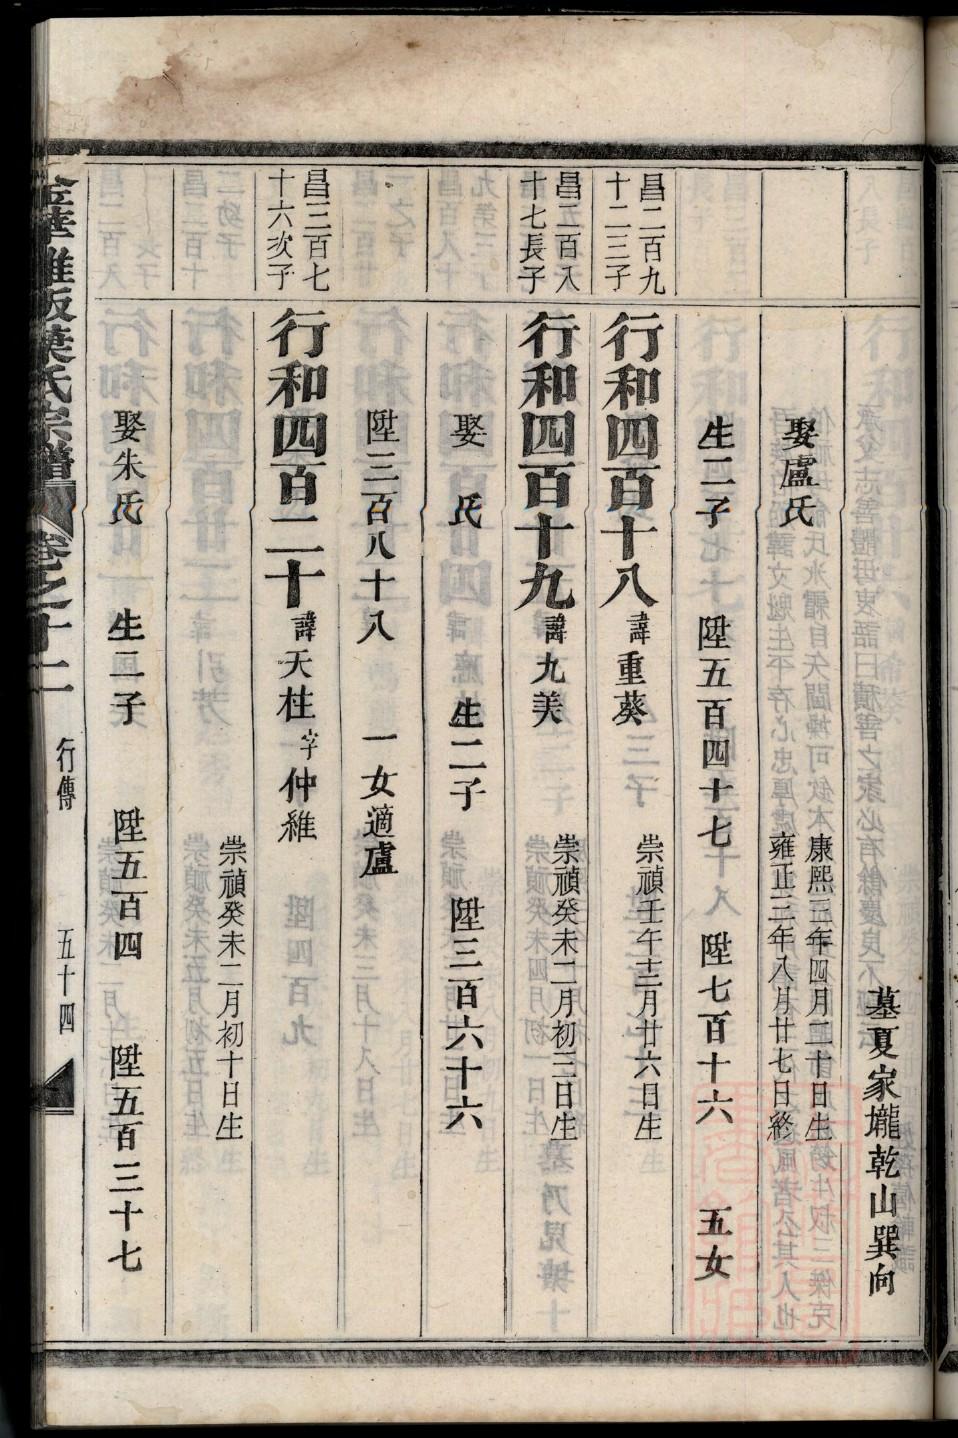 墓夏家壠乾山巽向
娶盧氏
康熙三年四月二十日生
雍正三年八月廿七日終
生二子 陞五百四十七 陞七百十六 五女
昌二百九
十二三子
行和四百十八 諱重葵
崇禎壬午十二月廿六日生
昌五百八
十七長子
行和四百十九 諱九美
崇禎癸未二月初三日生
娶 氏 生二子 陞三百六十六
陞三百八十八 一女適盧
昌三百七
十六次子
行和四百二十 諱天柱 字仲維
崇禎癸未二月初十日生
娶朱氏 生二子 陞五百四 陞五百三十七
葉氏宗譜 卷之十二 行傳 五十四